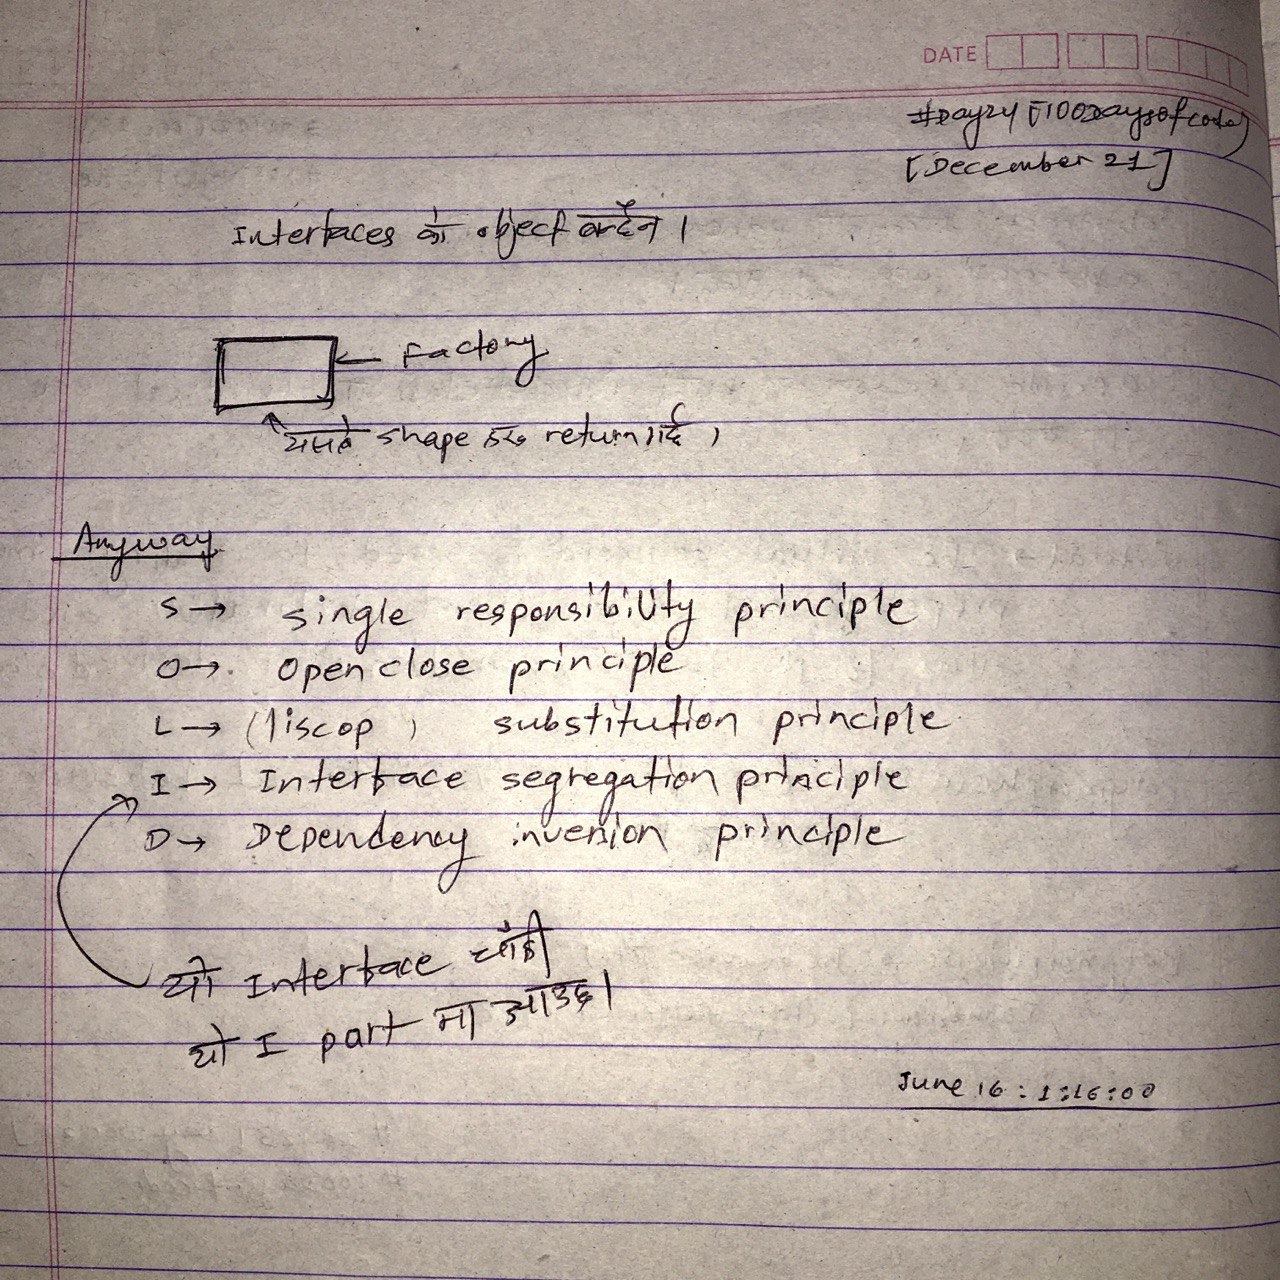 DATE
#Day24 [100DaysofCode]
[December 21]
Interfaces को object बन्दैन।
Factory
shape return
Anyway
S → single responsibility principle
O → Open close principle
L → (liscop ) substitution principle
I → Interface segregation principle
D → Dependency inversion principle
यो Interface चाँही
यो I part मा आउछ।
June 16 : 1:16:00